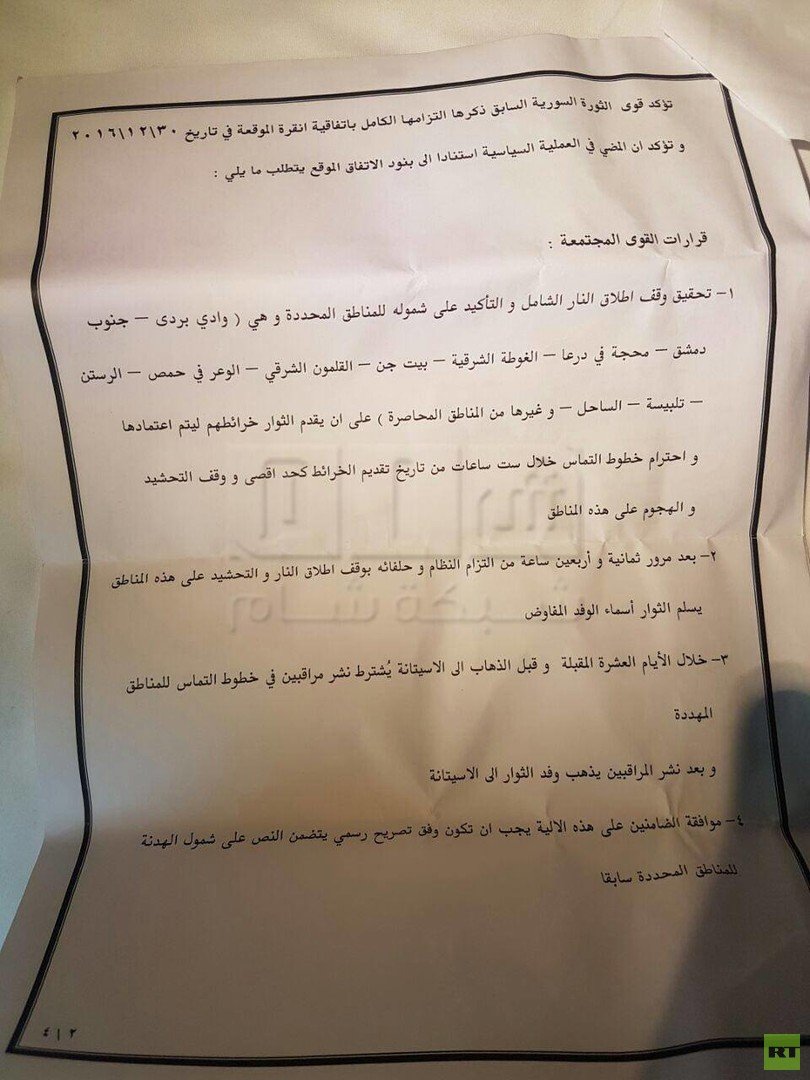 تؤكد قوى الثورة السورية السابق ذكرها التزامها الكامل باتفاقية انقرة الموقعة في تاريخ ٣٠\١٢\٢٠١٦
و تؤكد ان المضي في العملية السياسية استنادا الى بنود الاتفاق الموقع يتطلب ما يلي :
قرارات القوى المجتمعة :
١– تحقيق وقف اطلاق النار الشامل و التأكيد على شموله للمناطق المحددة و هي ( وادي بردى – جنوب
دمشق – محجة في درعا – الغوطة الشرقية – بيت جن – القلمون الشرقي – الوعر في حمص – الرستن
– تلبيسة – الساحل – و غيرها من المناطق المحاصرة ) على ان يقدم الثوار خرائطهم ليتم اعتمادها
و احترام خطوط التماس خلال ست ساعات من تاريخ تقديم الخرائط كحد اقصى و وقف التحشيد
و الهجوم على هذه المناطق
٢– بعد مرور ثمانية و أربعين ساعة من التزام النظام و حلفائه بوقف اطلاق النار و التحشيد على هذه المناطق
يسلم الثوار أسماء الوفد المفاوض
٣– خلال الأيام العشرة المقبلة و قبل الذهاب الى الاسيتانة يُشترط نشر مراقبين في خطوط التماس للمناطق
المهددة
و بعد نشر المراقبين يذهب وفد الثوار الى الاسيتانة
٤– موافقة الضامنين على هذه الالية يجب ان تكون وفق تصريح رسمي يتضمن النص على شمول الهدنة
للمناطق المحددة سابقا
٢ | ٤
شبكة شام
RT